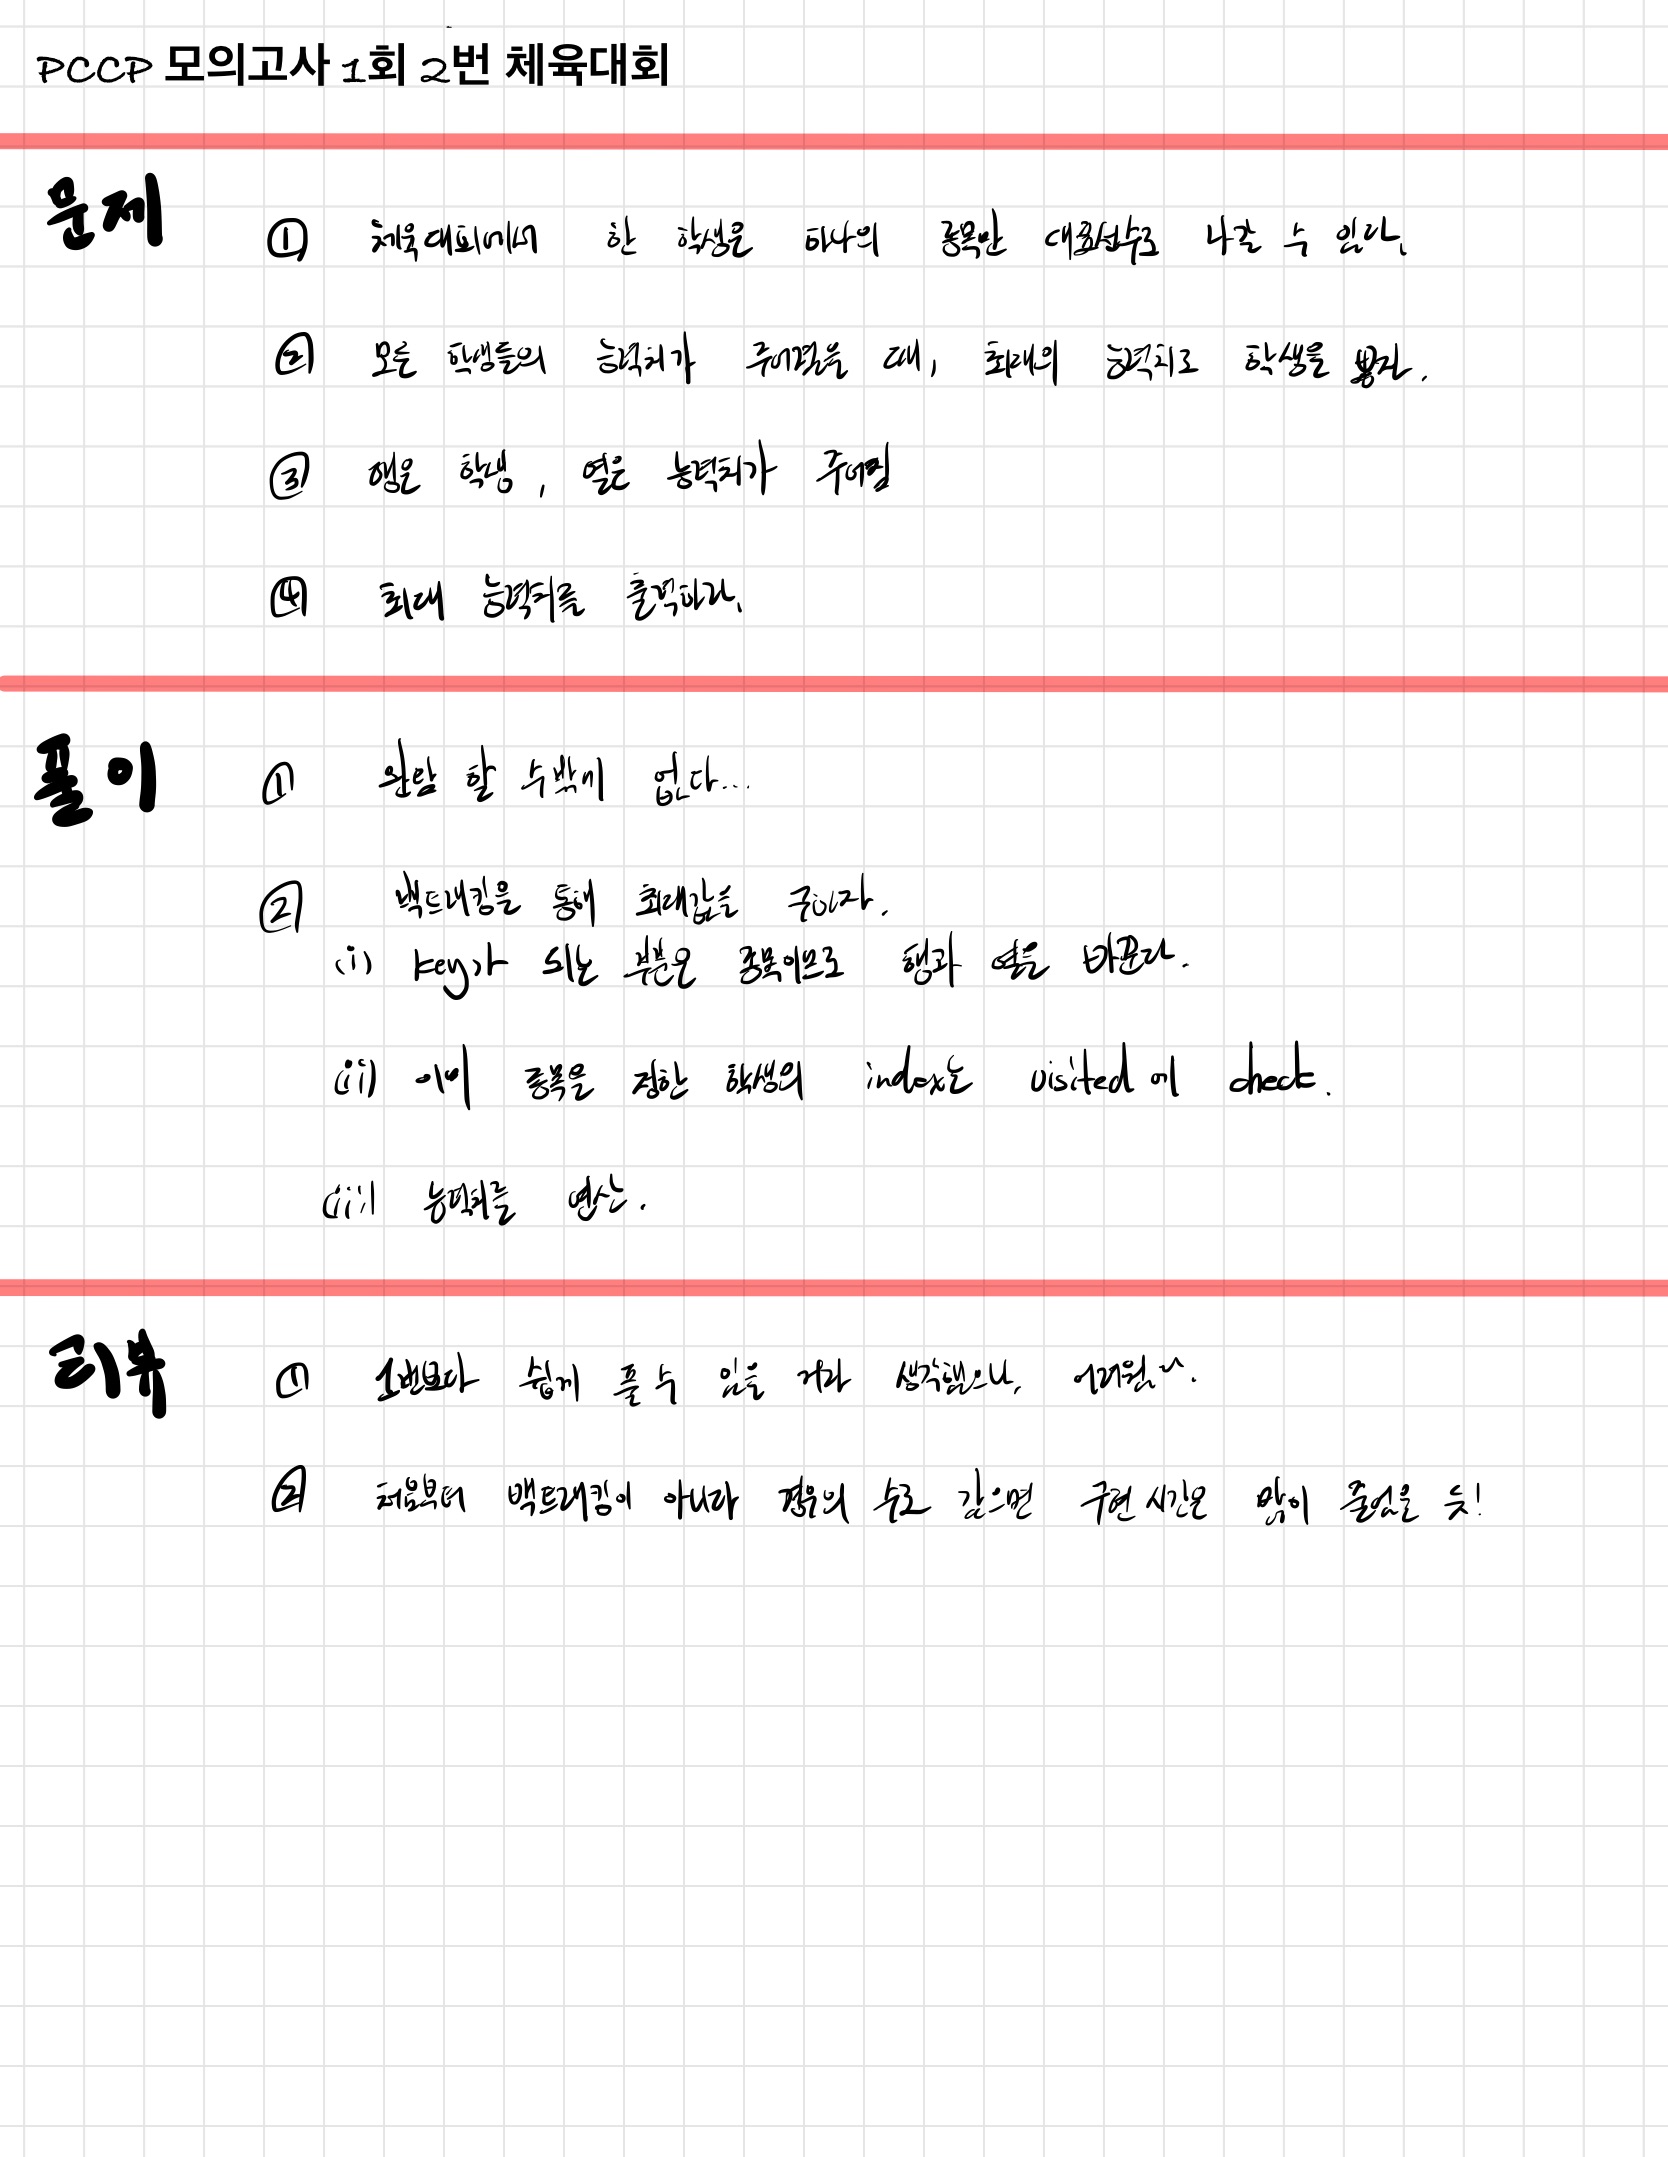 PCCP 모의고사 1회 2번 체육대회
문제
① 체육대회에서 한 학생은 하나의 종목만 대표선수로 나갈 수 있다.
② 모든 학생들의 능력치가 주어졌을 때, 최대의 능력치로 학생을 뽑자.
③ 행은 학생, 열은 능력치가 주어짐
④ 최대 능력치를 출력하라.
풀이
① 완탐 할 수밖에 없다...
② 백트래킹을 통해 최대값을 구하자.
(i) key가 되는 부분은 종목이므로 행과 열을 바꾼다.
(ii) 이미 종목을 정한 학생의 index는 visited에 check.
(iii) 능력치를 연산.
리뷰
① 1번보다 쉽게 풀 수 있을 거라 생각했으나, 어려웠~.
② 처음부터 백트래킹이 아니라 경우의 수로 갔으면 구현 시간은 많이 줄었을 듯!